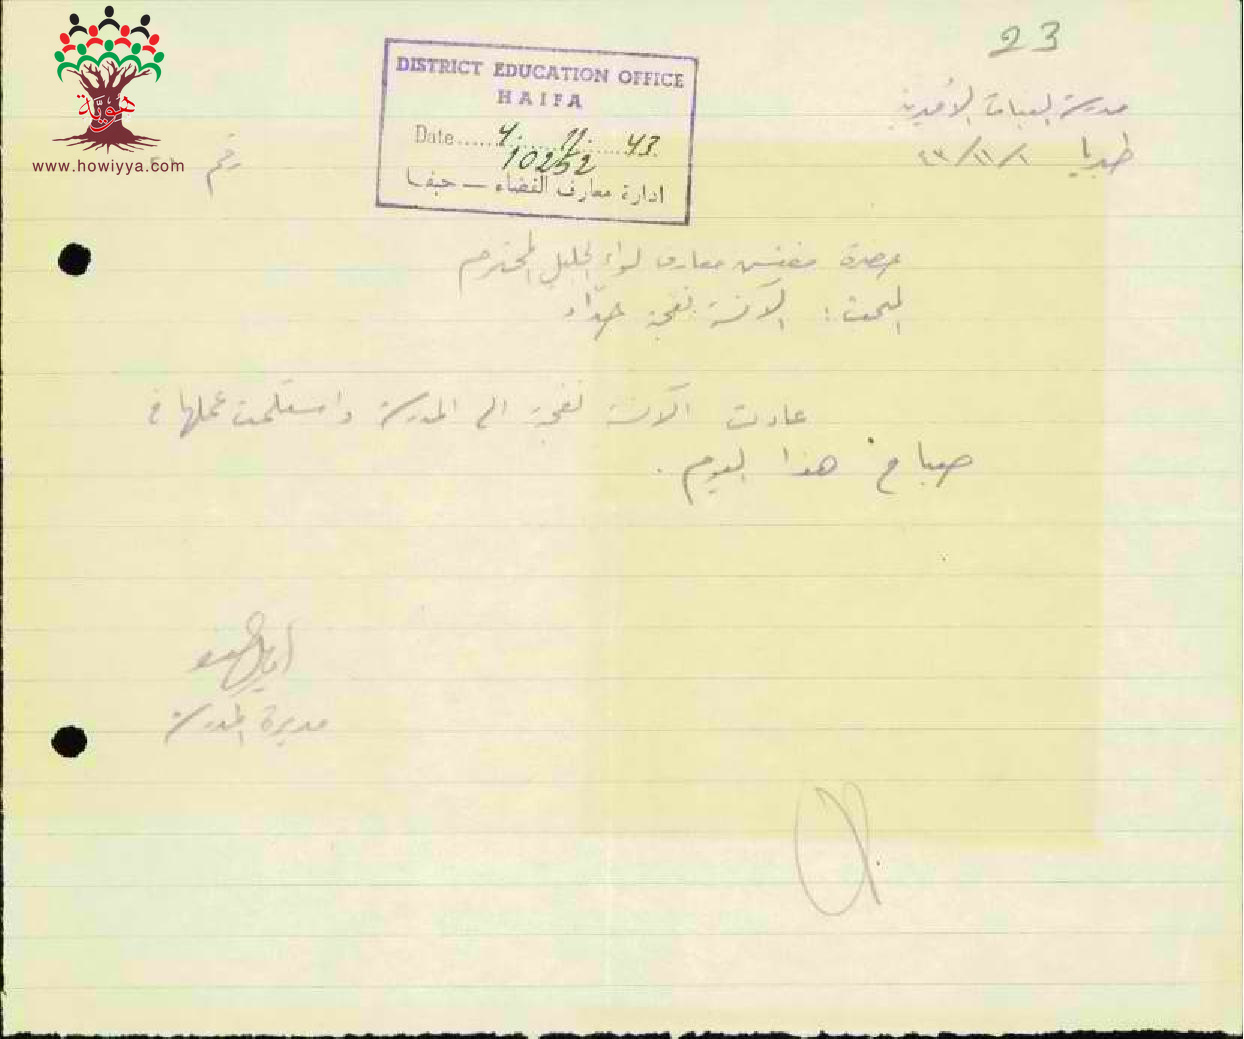 23
هويّة
www.howiyya.com
DISTRICT EDUCATION OFFICE
HAIFA
Date ...... 4. 11. 43
10252
ادارة معارف القضاء — حيفا
مدرسة البنات الأميرية
طبريا ١/١١/٤٣
رقم
حضرة مفتش معارف لواء الجليل المحترم
المبحث: الآنسة نفجة حدّاد
عادت الآنسة نفجة الى المدرسة واستلمت عملها في
صباح هذا اليوم.
مديرة المدرسة